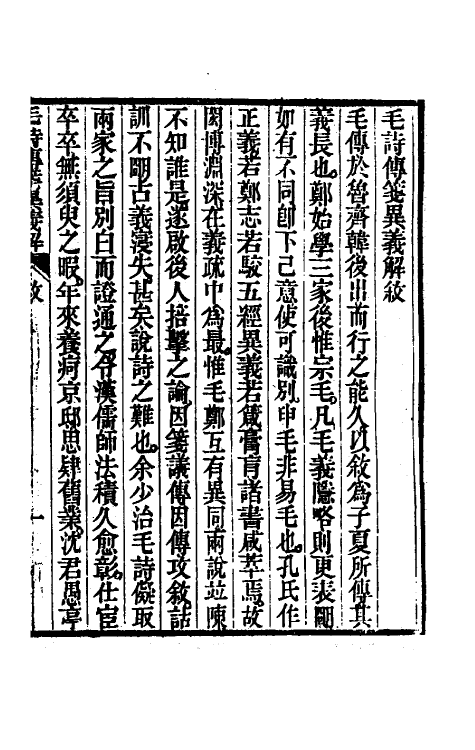 毛詩傳箋異義解敘
毛傳於魯齊韓後出而行之能久以敘為子夏所傳其
義長也。鄭始學三家後惟宗毛。凡毛義隱略則更表明
如有不同卽下己意使可識別。申毛非易毛也。孔氏作
正義若鄭志若駮五經異義若箴膏肓諸書咸萃焉。故
閎博淵深在義疏中為最。惟毛鄭互有異同兩說竝陳
不知誰是。遂啟後人掊擊之論。因箋議傳因傳攻敘。詁
訓不明古義寖失。甚矣說詩之難也。余少治毛詩儗取
兩家之旨別白而證通之。令漢儒師法積久愈彰。仕宦
卒卒無須臾之暇。年來養疴京邸思肄舊業。沈君愚亭
毛詩傳箋異義解 敘 一